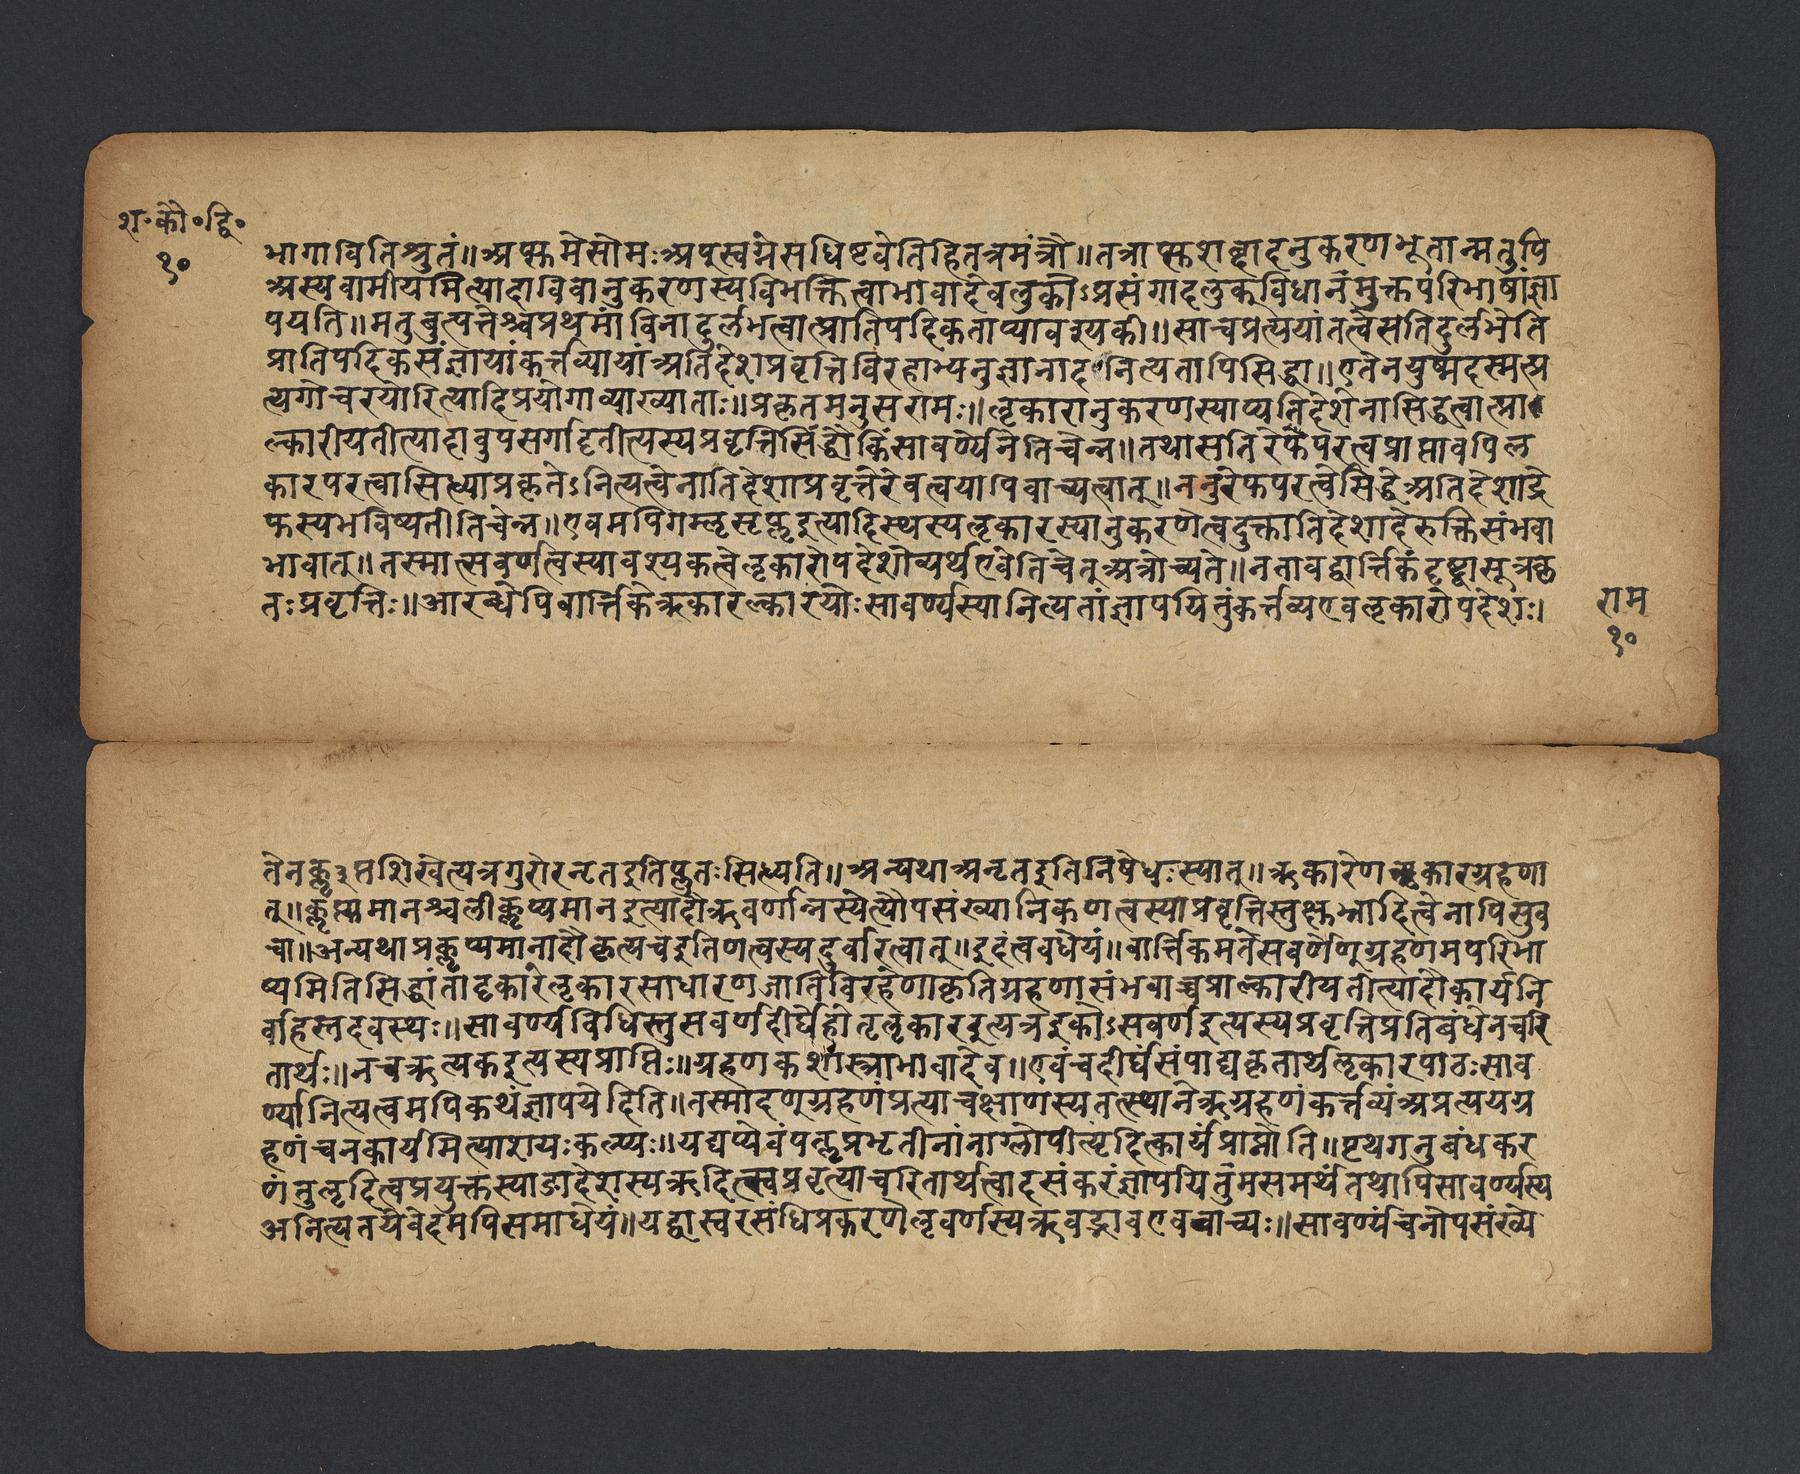 श॰कौ॰द्वि॰
१०
भागाविति श्रुतं॥अप्सुमेसोमःअप्स्वग्नेसधिष्टवेतिहितत्रमंत्रौ॥तत्राप्सुशब्दादनुकरणभूतान्मतुपि
अस्यवामीयमित्यादाविवानुकरणस्यविभक्तित्वाभावादेवलुकौऽप्रसंगादलुक्विधानंमुक्तपरिभाषांज्ञा
पयति॥मतुबुत्पत्तेश्चप्रथमांविनादुर्लभत्वात्प्रातिपदिकताप्यावश्यकी॥साचप्रत्ययांतत्वेसतिदुर्लभेति
प्रातिपदिकसंज्ञायांकर्त्तव्यायांअतिदेशप्रवृत्तिविरहाभ्यनुज्ञानादनित्यतापिसिद्धा॥एतेनयुष्मदस्मत्प्र
त्यगोचरयोरित्यादिप्रयोगाव्याख्याताः॥प्रकृतमनुसरामः॥लृकारानुकरणस्याप्यतिदेशेनासिद्धत्वात्प्रा
ल्कारीयतीत्यादावुपसर्गादृतीत्यस्यप्रवृत्तिसिद्धौकिंसावर्ण्येनेतिचेन्न॥तथासतिरेफपरत्वप्राप्तावपिल
कारपरत्वासिध्याप्रकृतेऽनित्यत्वेनातिदेशाप्रवृत्तेरेवत्वयापिवाच्यत्वात्॥ननुरेफपरत्वेसिद्धेअतिदेशाद्रे
फस्यभविष्यतीतिचेन्न॥एवमपिगम्लृसृप्लृइत्यादिस्थस्यलृकारस्यानुकरणेत्वदुक्तातिदेशादेरुक्तिसंभवा
भावात्॥तस्मात्सवर्णत्वस्यावश्यकत्वेलृकारोपदेशोव्यर्थएवेतिचेत्अत्रोच्यते॥नतावद्वार्त्तिकंदृष्ट्वासूत्रकृ
तःप्रवृत्तिः॥आरब्धेपिवार्त्तिकेऋकारल्कारयोःसावर्ण्यस्यानित्यतांज्ञापयितुंकर्त्तव्यएवलृकारोपदेशः।
राम
१०
तेनकॢ३प्तशिखेत्यत्रगुरोरनृतइतिप्लुतःसिध्यति॥अन्यथाअनृतइतिनिषेधःस्यात्॥ऋकारेणलृकारग्रहणा
त्॥कॢप्यमानश्चलीकॢप्यमानइत्यादौऋवर्णान्नस्येत्यौपसंख्यानिकणत्वस्याप्रवृत्तिस्तुक्षुभ्नादित्वेनापिसुव
चा॥अन्यथाप्रकॢप्यमानादौकृत्यचइतिणत्वस्यदुर्वारत्वात्॥इदंत्ववधेयं॥वार्त्तिकमतेसवर्णेणग्रहणमपरिभा
ष्यमितिसिद्धांतादृकारलृकारसाधारणजातिविरहेणाकृतिग्रहणासंभवाच्चप्राल्कारीयतीत्यादौकार्यनि
र्वाहस्तदवस्थः॥सावर्ण्यविधिस्तुसवर्णदीर्घेहोतृलृकारइत्यत्रइकोऽसवर्णइत्यस्यप्रवृत्तिप्रतिबंधेनचरि
तार्थः॥नचऋत्यकइत्यस्यप्राप्तिः॥ग्रहणकशास्त्राभावादेव॥एवंचदीर्घंसंपाद्यकृतार्थलृकारपाठःसाव
र्ण्यानित्यत्वमपिकथंज्ञापयेदिति॥तस्मादण्ग्रहणंप्रत्याचक्षाणस्यतत्स्थानेऋग्रहणंकर्त्तव्यंअप्रत्ययग्र
हणंचनकार्यमित्याशयःकल्प्यः॥यद्यप्येवंपत्लृप्रभृतीनांनाग्लोपीत्यृदित्कार्यंप्राप्नोति॥पृथगनुबंधकर
णंतुलृदित्वप्रयुक्तस्याङादेशस्यऋदित्स्वप्रवृत्याचरितार्थत्वादसंकरंज्ञापयितुमसमर्थंतथापिसावर्ण्यस्य
अनित्यतयैवेदमपिसमाधेयं॥यद्वास्वरसंधिप्रकरणेलृवर्णस्यऋवद्भावएववाच्यः॥सावर्ण्यंचिनोपसंख्ये